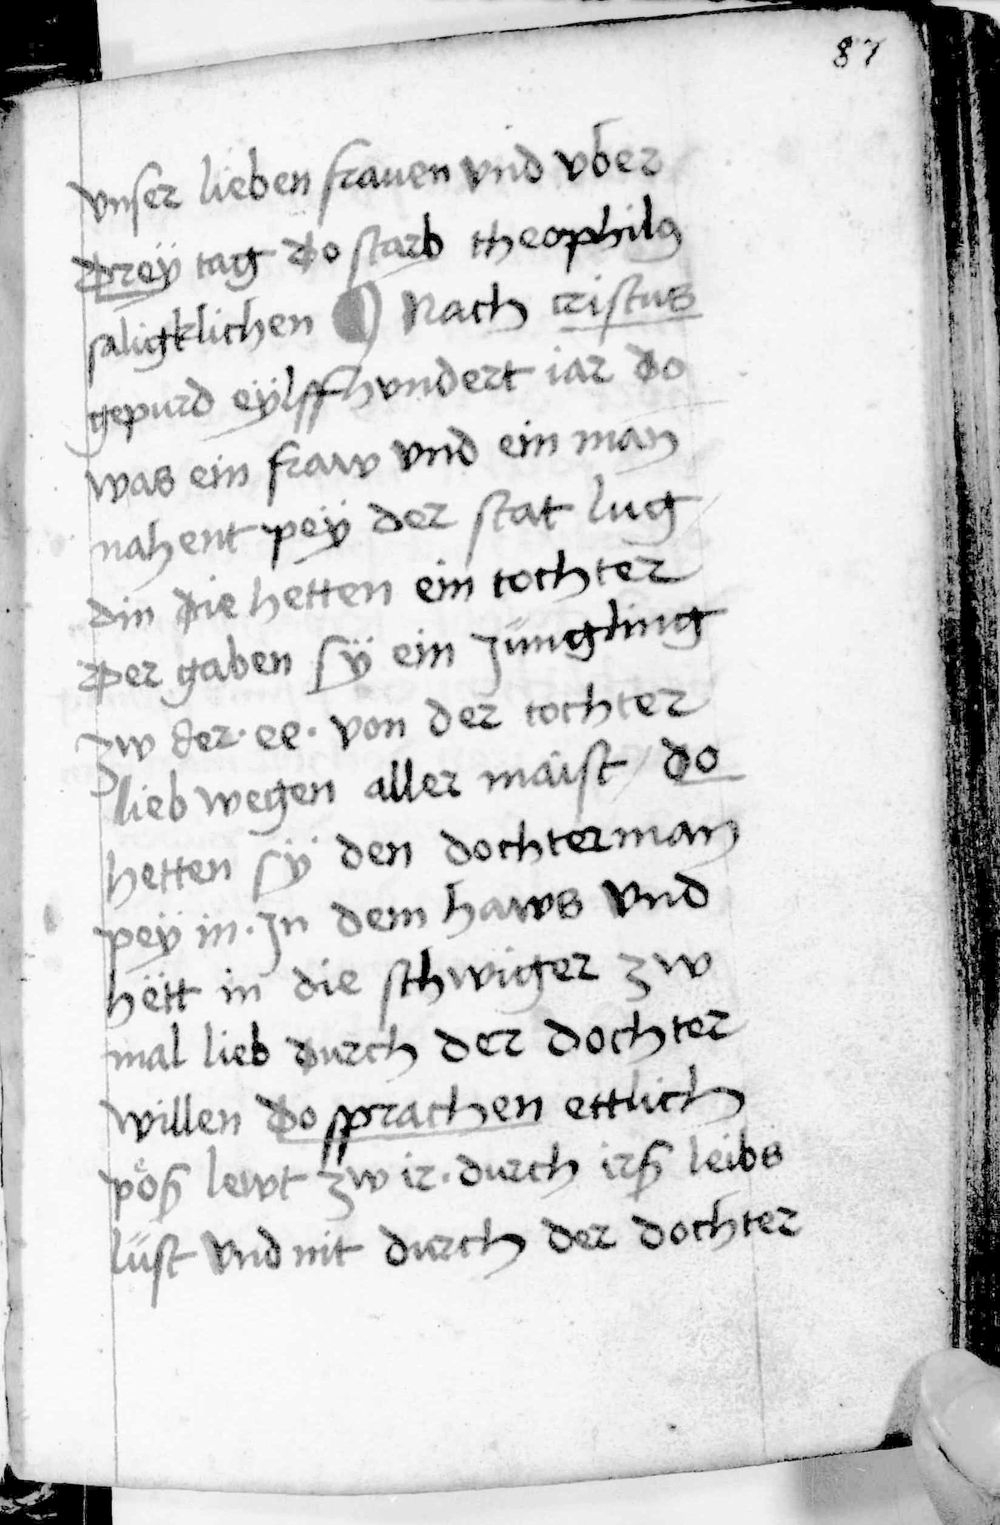 87
vnser lieben frauen vnd vber
Dreÿ tag do starb theophilꝯ
saligklichen Nach cristus
gepurd eÿlffhvndert iar do
was ein fraw vnd ein man
nahent peÿ der stat lug
din die hetten ein tochter
Der gaben sÿ ein Jüngling
zw der · ee · von der tochter
lieb wegen aller maist / do
hetten sÿ den dochterman
peÿ in · Jn dem haws vnd
hëtt in die schwiger zw
mal lieb durch der dochter
willen do sprachen ettlich
pöß lewt zw ir · durch irß leibs
lüst vnd nit durch der dochter